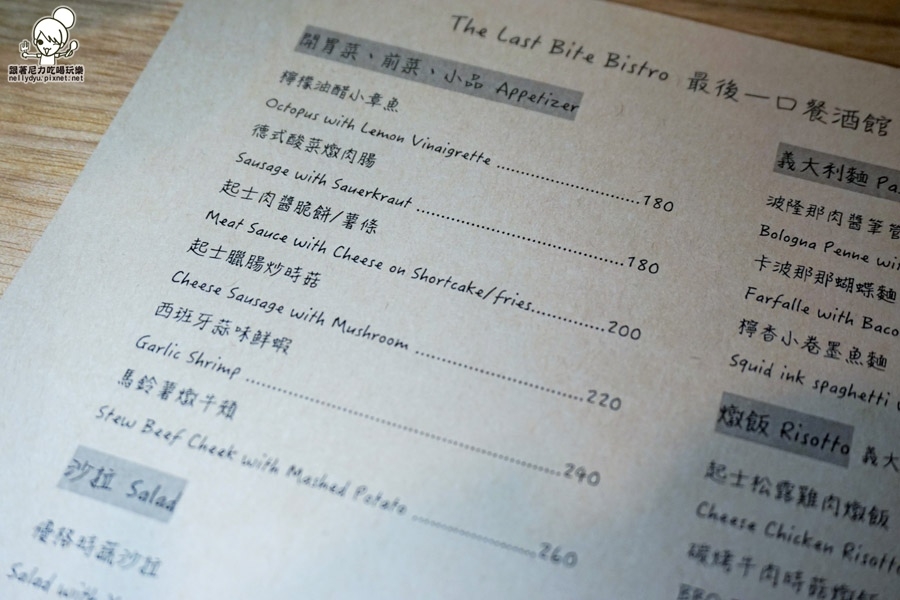 跟著尼力吃喝玩樂
nellydyu.pixnet.net
The Last Bite Bistro 最後一口餐酒館
開胃菜、前菜、小品 Appetizer
檸檬油醋小章魚
Octopus with Lemon Vinaigrette ........................180
德式酸菜燉肉腸
Sausage with Sauerkraut ...................................180
起士肉醬脆餅/薯條
Meat Sauce with Cheese on Shortcake/fries............200
起士臘腸炒時菇
Cheese Sausage with Mushroom .............................220
西班牙蒜味鮮蝦
Garlic Shrimp .....................................................290
馬鈴薯燉牛頰
Stew Beef Cheek with Mashed Potato .....................260
沙拉 Salad
優格時蔬沙拉
Salad with
義大利麵
波隆那肉醬筆管
Bologna Penne
卡波那那蝴蝶麵
Farfalle with
檸香小卷墨魚麵
Squid ink spaghetti
燉飯 Risotto 義大
起士松露雞肉燉飯
Cheese Chicken Risotto
碳烤牛肉時菇燉飯
BBQ